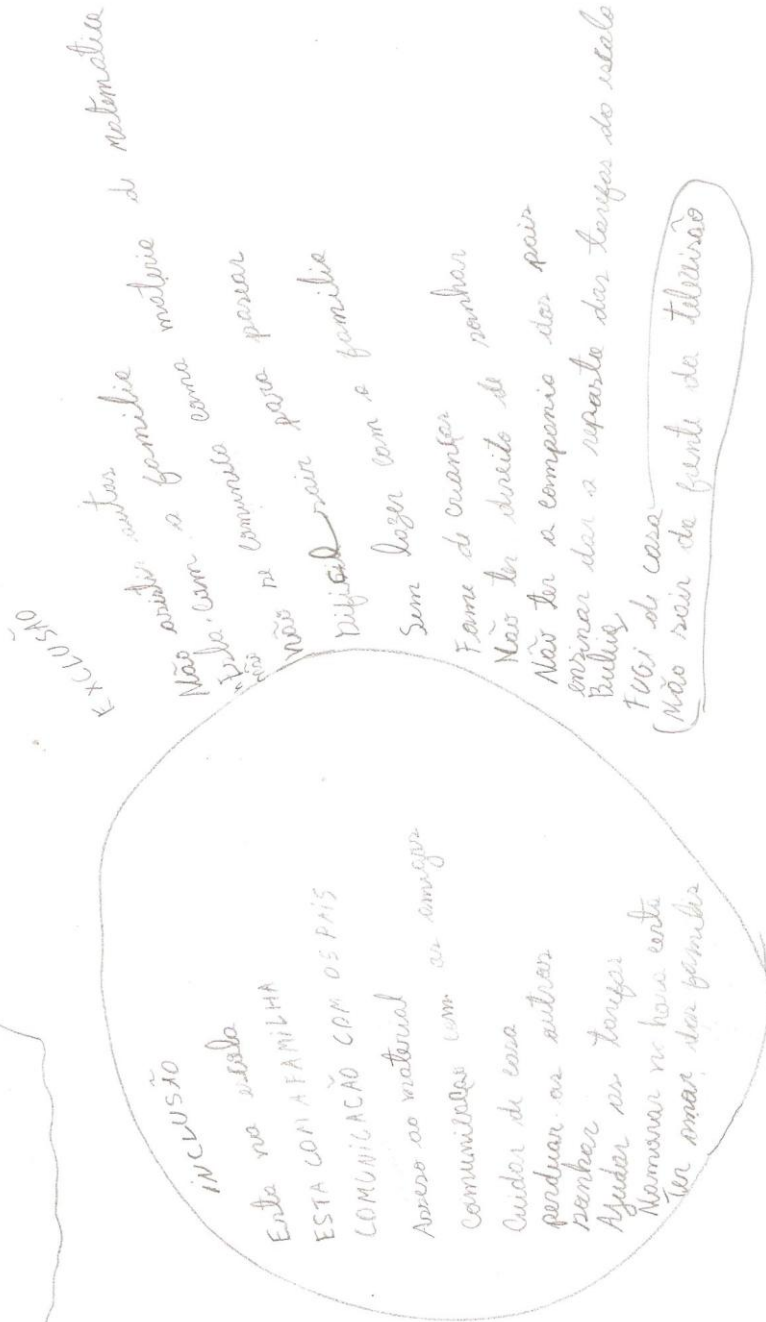 INCLUSÃO
Esta na escola
ESTA COM A FAMILHA
COMUNICAÇÃO COM OS PAIS
Acesso ao material
comunicação com os amigos
Cuidar de casa
perduar os outros
sonhar
Ajudar as tarefas
Namorar na hora certa
Ter amor das familes
EXCLUSÃO
Não asistir outras
Esta com a familia
não se comunica como materia de matemática
não sair para pasear
Dificil
Sem lazer com a familia
Fome de crianças
Não ter direito de sonhar
Não ter a compania dos pais
ensinar dar a reposta das tarefas do escala
Bulliq
FUGI de casa
(Não sair da frente da televisão